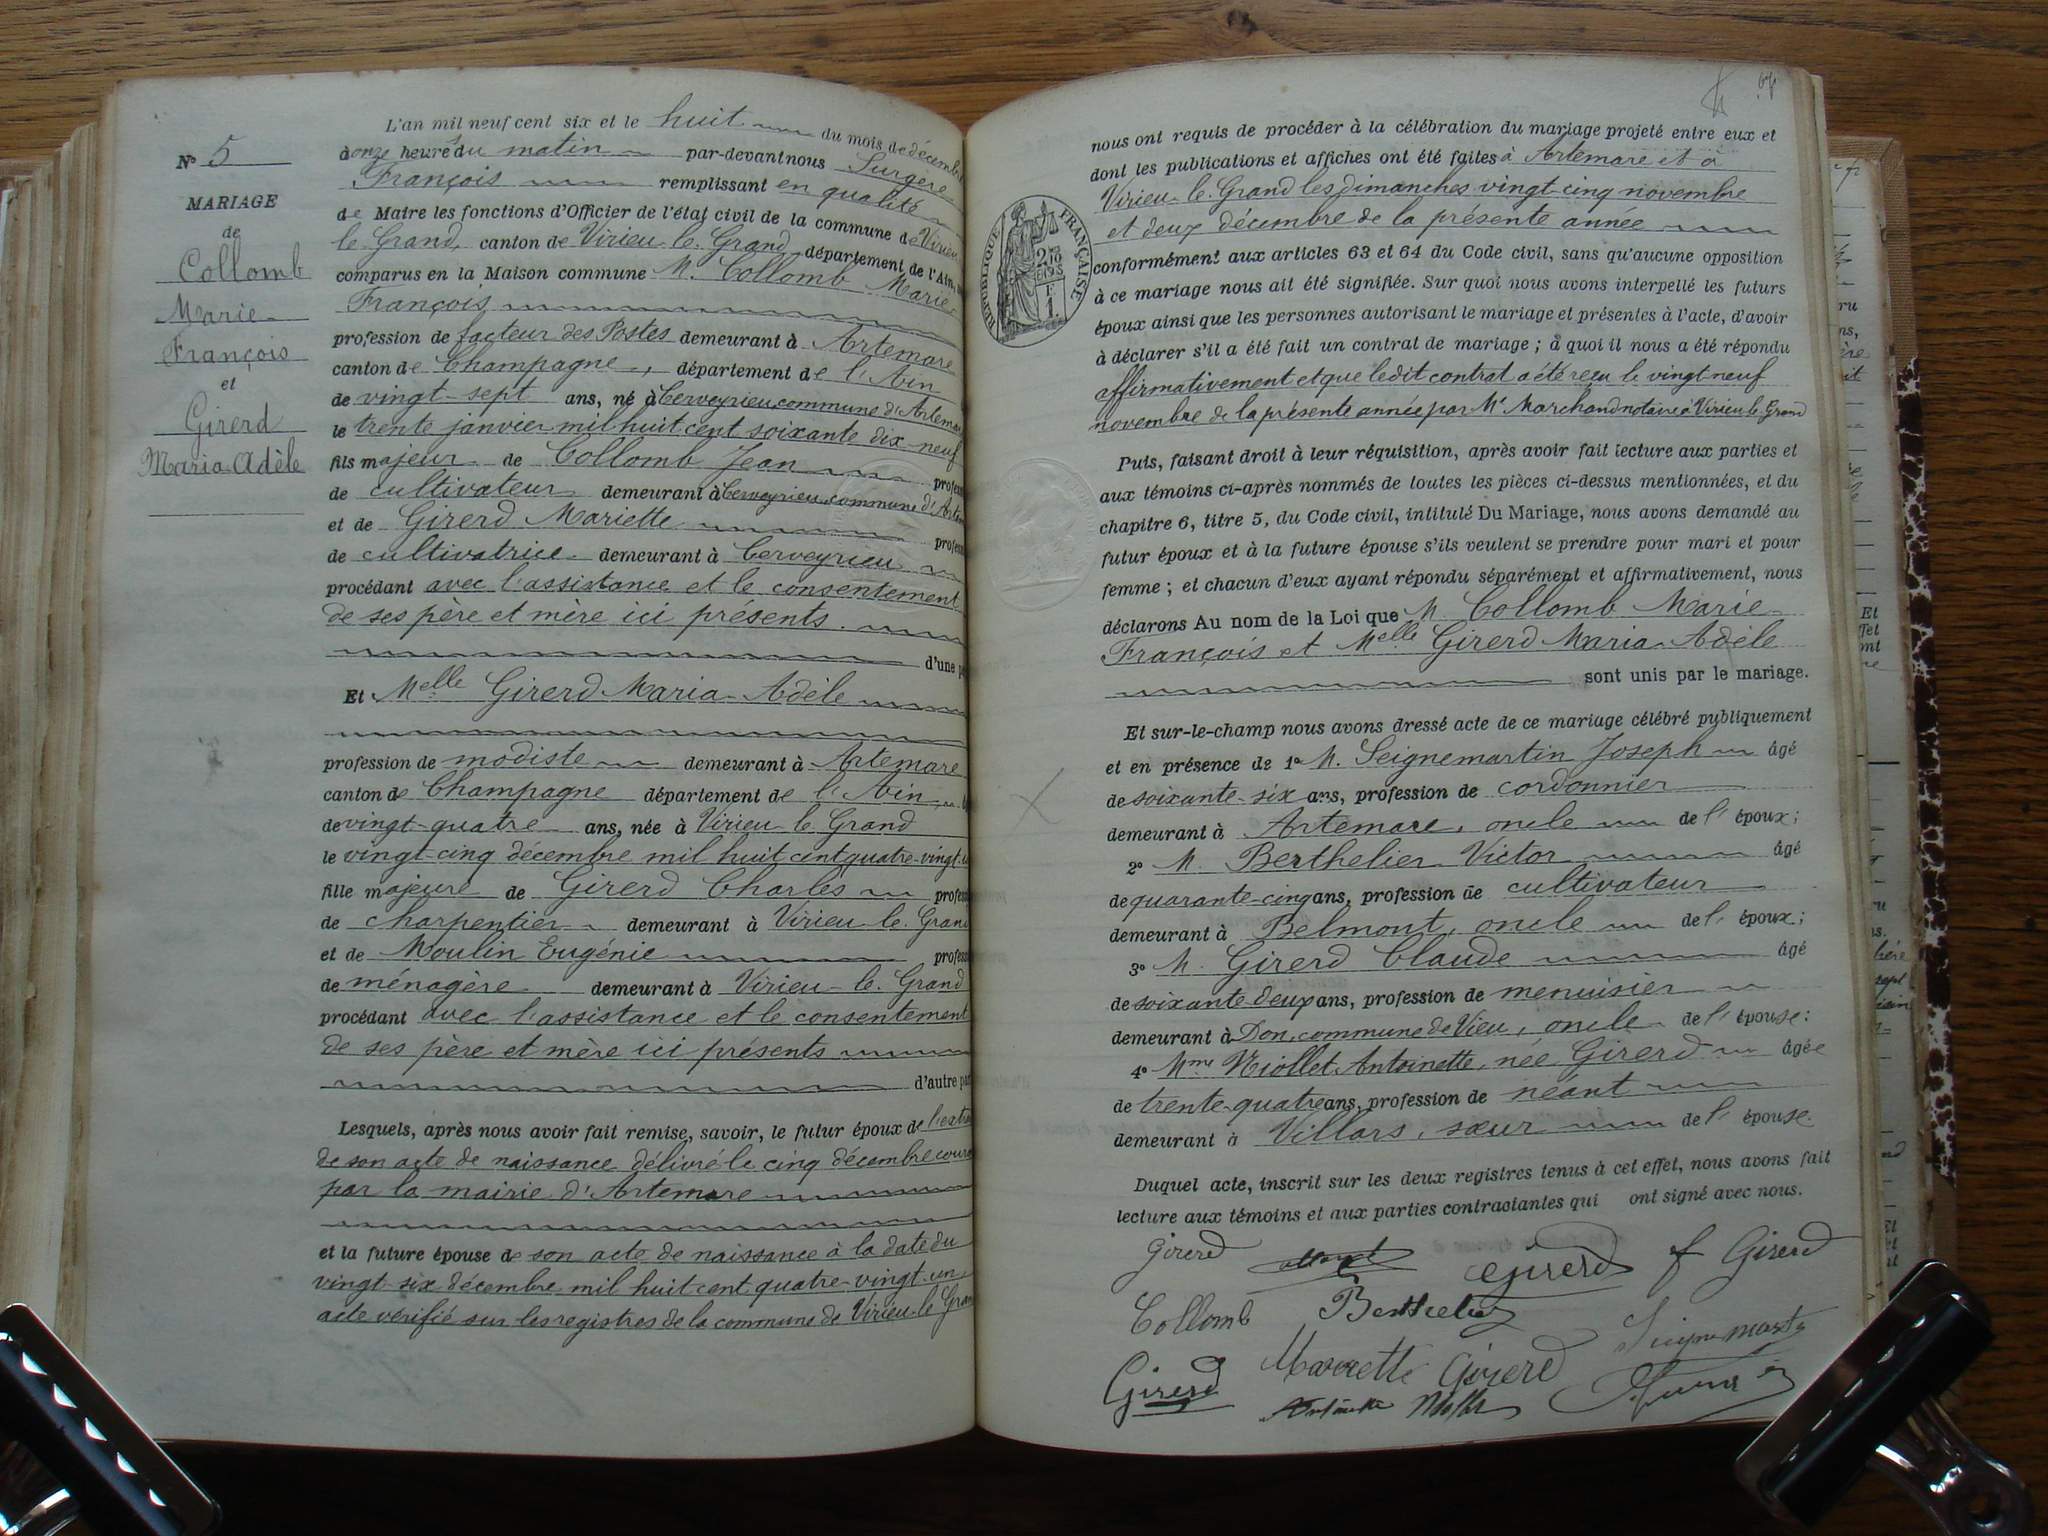 N° 5
MARIAGE
de
Collomb
Marie
François
et
Girerd
Maria Adèle
L'an mil neuf cent six et le huit du mois de décembre
à onze heures du matin par-devant nous Surgère
François remplissant en qualité
de Maire les fonctions d'Officier de l'état civil de la commune de Virieu
le Grand, canton de Virieu-le-Grand département de l'Ain,
comparus en la Maison commune M. Collomb Marie
François
profession de facteur des Postes demeurant à Artemare
canton de Champagne, département de l'Ain
de vingt-sept ans, né à Cerveyrieu, commune d'Artemare
le trente janvier mil huit cent soixante dix-neuf
fils majeur de Collomb Jean profess
de cultivateur demeurant à Cerveyrieu, commune d'Artem
et de Girerd Mariette profess
de cultivatrice demeurant à Cerveyrieu
procédant avec l'assistance et le consentement
de ses père et mère ici présents.
d'une pa
Et Melle Girerd Maria-Adèle
profession de modiste demeurant à Artemare
canton de Champagne département de l'Ain
de vingt-quatre ans, née à Virieu-le-Grand
le vingt-cinq décembre mil huit cent quatre-vingt-u
fille majeure de Girerd Charles profess
de charpentier demeurant à Virieu-le-Grand
et de Moulin Eugénie profess
de ménagère demeurant à Virieu-le-Grand
procédant avec l'assistance et le consentement
de ses père et mère ici présents
d'autre part
Lesquels, après nous avoir fait remise, savoir, le futur époux de l'extra
de son acte de naissance délivré le cinq décembre coura
par la mairie d'Artemare
et la future épouse de son acte de naissance à la date du
vingt-six décembre mil huit cent quatre-vingt-un
acte vérifié sur les registres de la commune de Virieu-le-Gran
67
RÉPUBLIQUE FRANÇAISE
nous ont requis de procéder à la célébration du mariage projeté entre eux et
dont les publications et affiches ont été faites à Artemare et à
Virieu-le-Grand les dimanches vingt-cinq novembre
et deux décembre de la présente année
conformément aux articles 63 et 64 du Code civil, sans qu'aucune opposition
à ce mariage nous ait été signifiée. Sur quoi nous avons interpellé les futurs
époux ainsi que les personnes autorisant le mariage et présentes à l'acte, d'avoir
à déclarer s'il a été fait un contrat de mariage ; à quoi il nous a été répondu
affirmativement et que ledit contrat a été reçu le vingt-neuf
novembre de la présente année par Me Marchand notaire à Virieu-le-Grand
Puis, faisant droit à leur réquisition, après avoir fait lecture aux parties et
aux témoins ci-après nommés de toutes les pièces ci-dessus mentionnées, et du
chapitre 6, titre 5, du Code civil, intitulé Du Mariage, nous avons demandé au
futur époux et à la future épouse s'ils veulent se prendre pour mari et pour
femme ; et chacun d'eux ayant répondu séparément et affirmativement, nous
déclarons Au nom de la Loi que M. Collomb Marie
François et Melle Girerd Maria-Adèle
sont unis par le mariage.
Et sur-le-champ nous avons dressé acte de ce mariage célébré publiquement
et en présence de 1° M. Seignemartin Joseph âgé
de soixante-six ans, profession de cordonnier
demeurant à Artemare, oncle de l'époux ;
2° M. Berthelier Victor âgé
de quarante-cinq ans, profession de cultivateur
demeurant à Belmont, oncle de l'époux ;
3° M. Girerd Claude âgé
de soixante-deux ans, profession de menuisier
demeurant à Don, commune de Vieu, oncle de l'épouse :
4° Mme Niollet Antoinette, née Girerd âgée
de trente-quatre ans, profession de néant
demeurant à Villars, sœur de l'épouse.
Duquel acte, inscrit sur les deux registres tenus à cet effet, nous avons fait
lecture aux témoins et aux parties contractantes qui ont signé avec nous.
Girerd Girerd f Girerd
Collomb Berthelier Seignemartin
Girerd Mariette Girerd
Antoinette